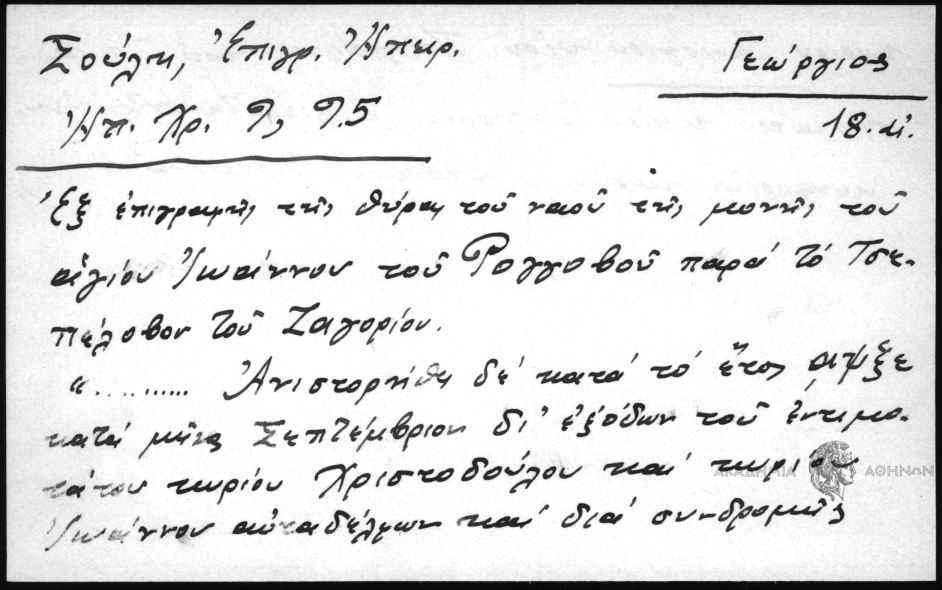 Σούλη, Ἐπιγρ. Ἠπειρ.
Γεώργιος
Ἠπ. Χρ. 9, 95
18. αἰ.
Ἐξ ἐπιγραφῆς τῆς θύρας τοῦ ναοῦ τῆς μονῆς τοῦ
ἁγίου Ἰωάννου τοῦ Ρογγοβοῦ παρά τό Τσε-
πέλοβον τοῦ Ζαγορίου.
“.......... Ἀνιστορήθη δέ κατά τό ἔτος αψξε
κατά μῆνα Σεπτέμβριον δι' ἐξόδων τοῦ ἐντιμο-
τάτου κυρίου Χριστοδούλου καί κυρίου
Ἰωάννου αὐταδέλφων καί διά συνδρομῆς
ΑΚΑΔΗΜΙΑ ΑΘΗΝΩΝ